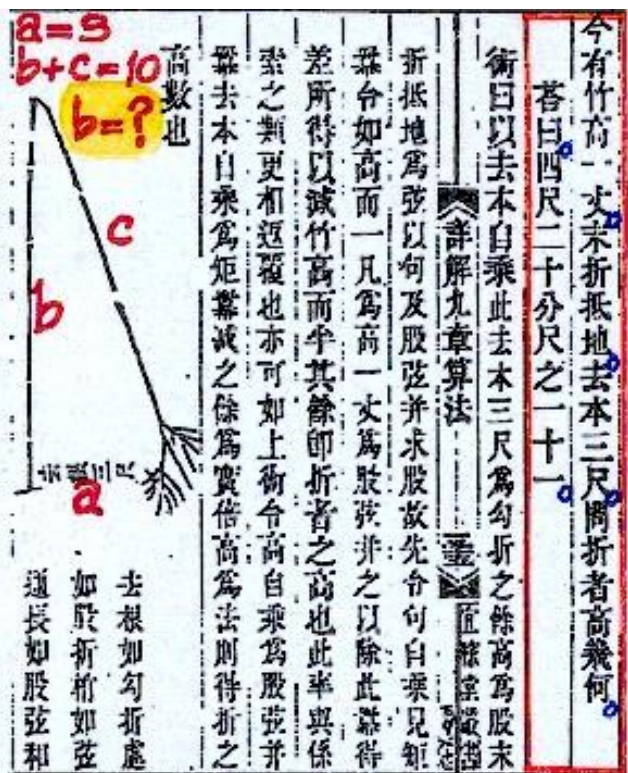 今有竹高一丈末折抵地去本三尺問折者高幾何
荅曰四尺二十分尺之一十一
術曰以去本自乘此去本三尺為勾折之餘高為股末
詳解九章算法
宜稼堂叢書
折抵地為弦以句及股弦并求股故先令句自乘見矩
冪令如高而一凡為高一丈為股弦并之以除此冪得
差所得以減竹高而半其餘即折者之高也此率與係
索之類更相返覆也亦可如上術令高自乘為股弦并
冪去本自乘為矩冪減之餘為實倍高為法則得折之
高數也
a=3
b+c=10
b=?
c
b
a
去根如勾折處
如股折梢如弦
通長如股弦和